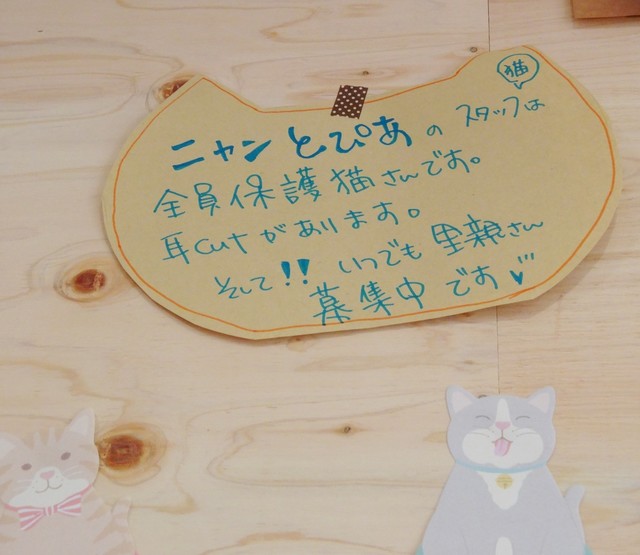 猫
ニャンとぴあの スタッフは
全員保護猫さんです。
耳cutがあります。
そして!! いつでも 里親さん
募集中です